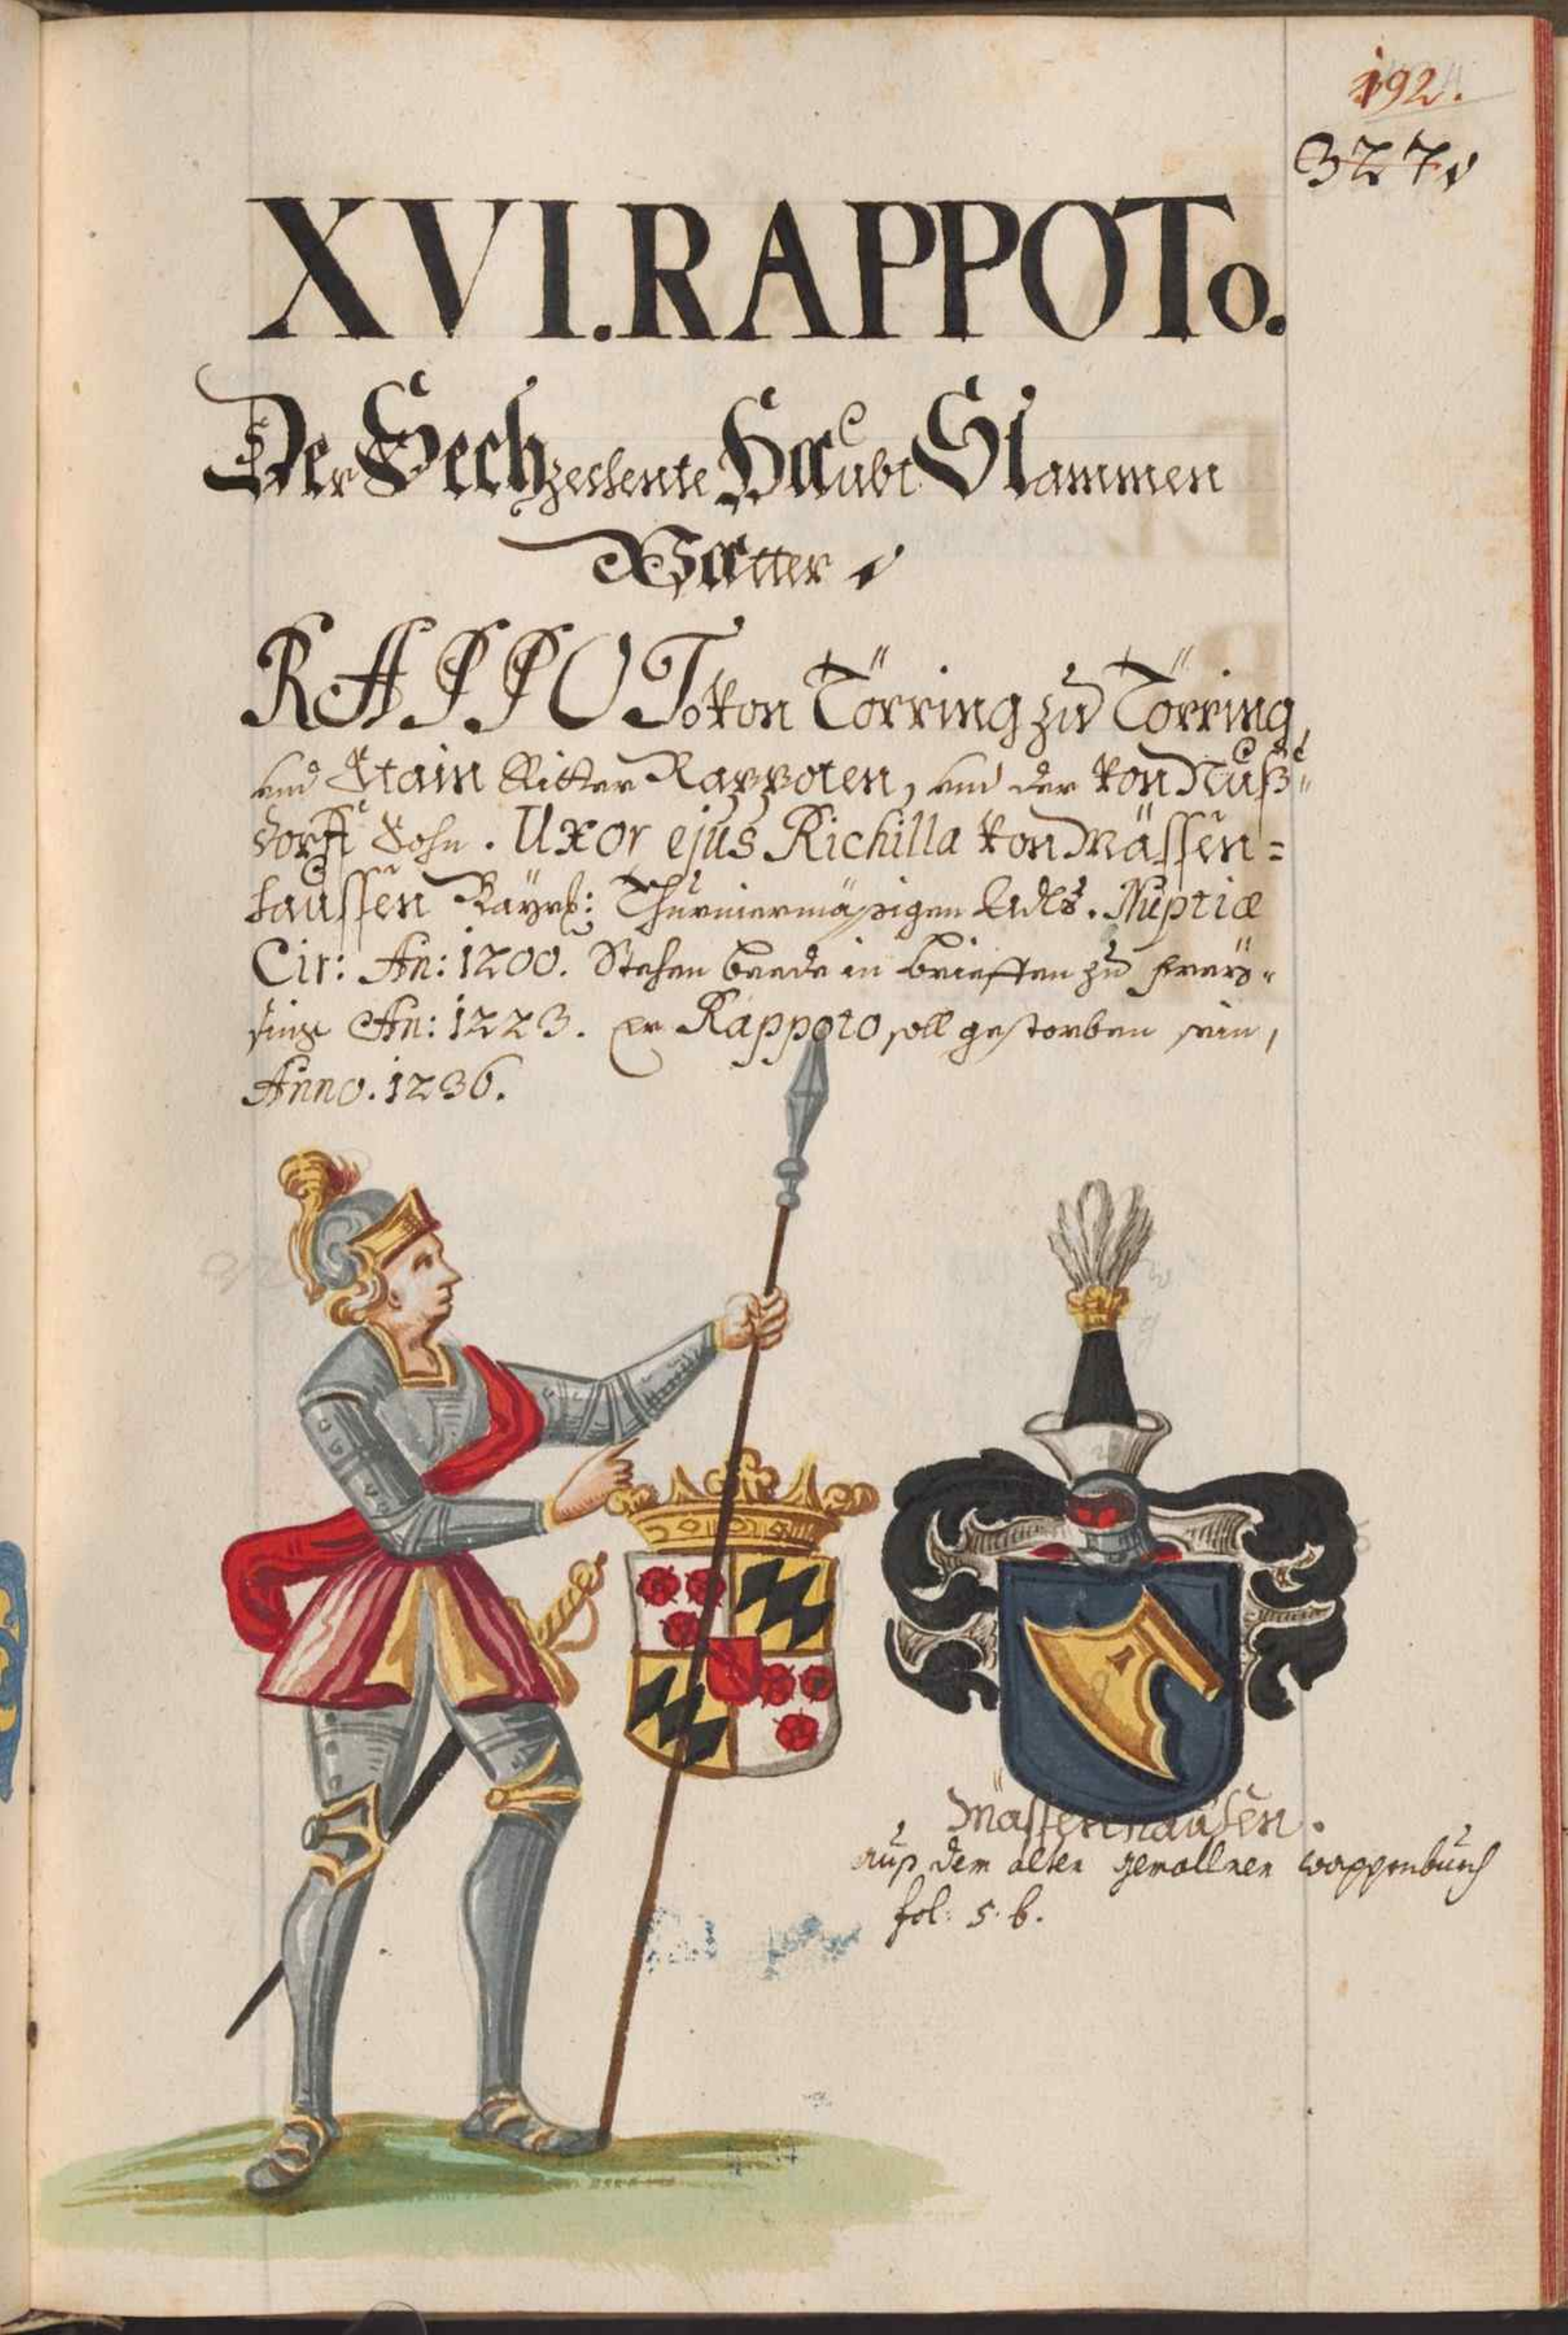 192.
327.
XVI. RAPPOTo.
Der Sechzechente Haubt Stammen
Vatter.
RAPPOTo von Törring zu Törring,
und Stain Ritter Rappoten, und der von Nuß=
dorff Sohn. Uxor ejus Richilla von Mässen=
haussen Bayrl: Thurniermäsigen Adls. Nuptiæ
Cir: An: 1200. Stehen beede in brieffen zu
An: 1223. Er Rappoto soll gestorben sein,
Anno. 1236.
Mässenhausen.
auß dem alten gemallnen wappenbuch
fol: 5. b.